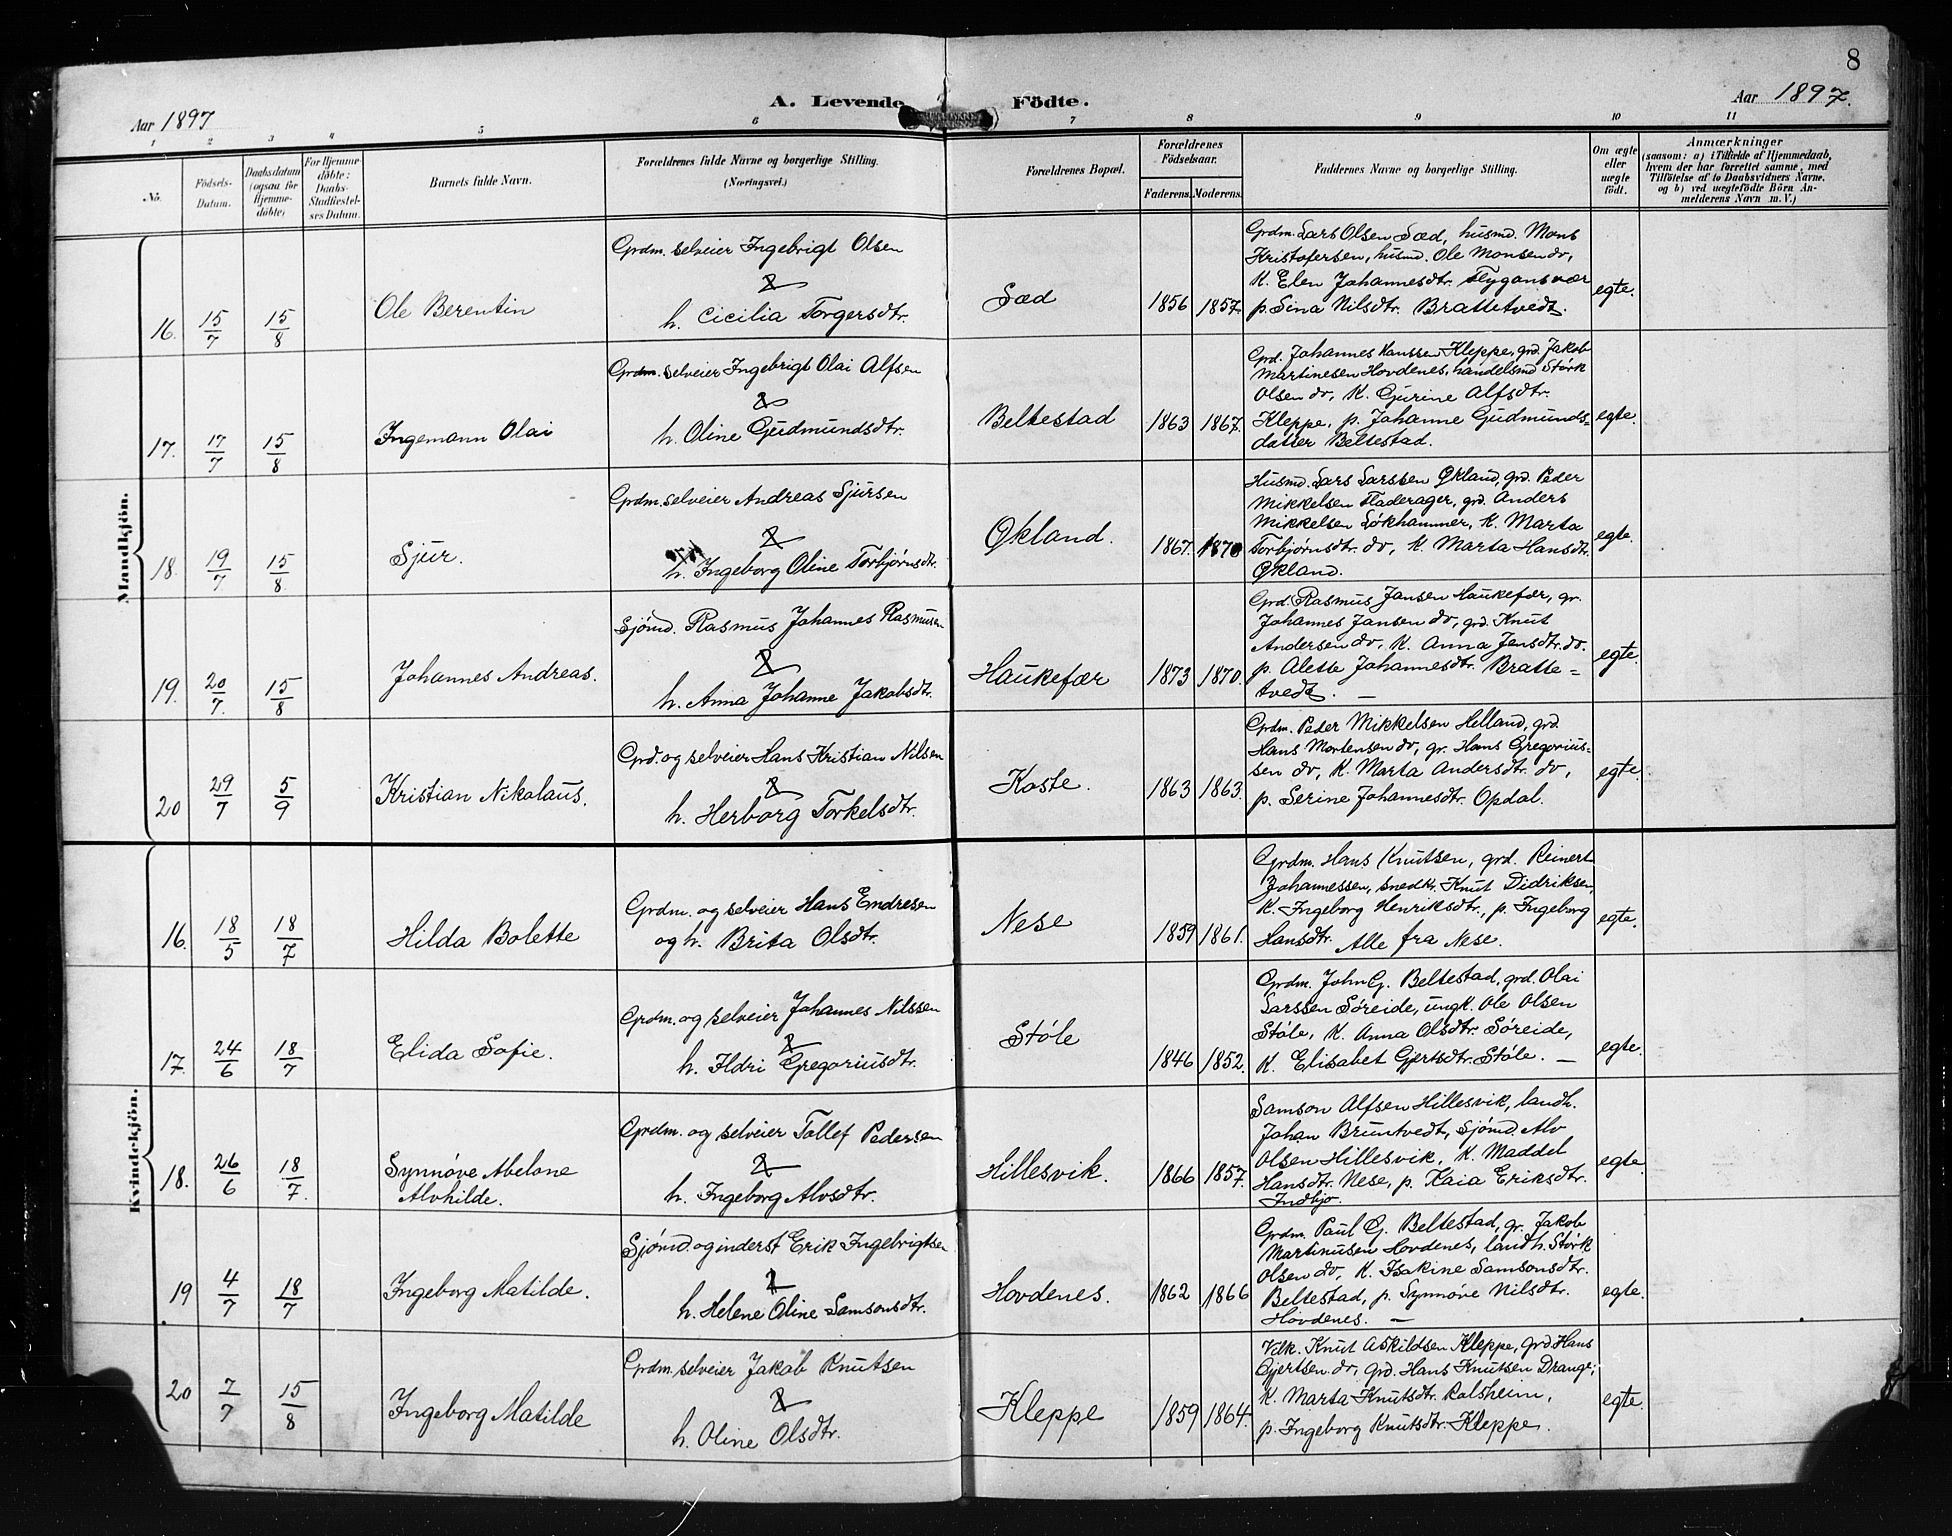 8
A. Levende Födte.
Aar 1897
Aar 1897.
1 2 3 4 5 6 7 8 9 10 11
No.
Födsels-Datum.
Daabsdatum (ogsaa for Hjemme-döbte)
For Hjemme-döbte: Daabs-Stadfæstel-ses Datum.
Barnets fulde Navn.
Forældrenes fulde Navne og borgerlige Stilling. (Næringsvei.)
Forældrenes Bopæl.
Forældrenes Födselsaar.
Faderens. Moderens.
Faddernes Navne og borgerlige Stilling.
Om ægte eller uægte födt.
Anmærkninger
(saasom: a) i Tilfælde af Hjemmedaab, hvem der har forrettet samme, med Tilföielse af to Daabsvidners Navne, og b) ved uægtefödte Börn An-melderens Navn m. V.)
Mandkjön.
16. 15/7 15/8
Ole Berentin
Grdm. selveier Ingebrigt Olsen
&
h. Cicilia Torgersdtr.
Sæd
1856 1857.
Grdm. Lars Olsen Sæd, husmd. Mons
Kristofersen, husmd. Ole Monsen do,
K. Elen Johannesdtr. Flygansvær
p. Sina Nilsdtr. Brattetvedt.
egte.
17. 17/7 15/8
Ingemann Olai
Grdm. selveier Ingebrigt Olai Alfsen
&
h. Oline Gudmundsdtr.
Beltestad
1863 1867.
Grd. Johannes Hanssen Kleppe, grd. Jakob
Martinesen Hovdenes, handelsmd Størk
Olsen do, K. Gurine Alfsdtr.
Kleppe, p. Johanne Gudmunds=
datter Beltestad.
egte.
18. 19/7 15/8
Sjur.
Grdm. selveier Andreas Sjursen
&
h. Ingeborg Oline Torbjørnsdtr.
Økland.
1867. 1870
Husmd. Lars Larssen Økland, grd. Peder
Mikkelsen Fladerager, grd. Anders
Mikkelsen Løkhammer, K. Marta
Torbjørnsdtr. do, K. Marta Hansdt.
Økland.
egte.
19. 20/7. 15/8
Johannes Andreas.
Sjømd. Rasmus Johannes Rasmusen
&
h. Anna Johanne Jakobsdtr.
Haukefær
1873 1870.
Grd. Rasmus Jansen Haukefær, gr.
Johannes Jansen do, grd. Knut
Andersen do, K. Anna Jensdtr. do.
p. Alette Johannesdtr. Bratte=
tvedt. —
egte.
20 29/7 5/9
Kristian Nikolaus.
Grd. og selveier Hans Kristian Nilsen
&
h. Herborg Torkelsdtr.
Koste.
1863 1863.
Grdm. Peder Mikkelsen Helland, grd.
Hans Mortensen do, gr. Hans Gregorius-
sen do, K. Marta Andersdtr. do,
p. Serine Johannesdtr. Opdal.
egte.
Kvindekjön.
16. 18/5 18/7
Hilda Bolette
Grdm. og selveier Hans Endresen
og h. Brita Olsdtr.
Nese
1859 1861.
Grdm. Hans Knutsen, grd. Reinert
Johannessen, snedkr. Knut Didriksen
K. Ingeborg Henriksdtr., p. Ingeborg
Hansdtr. Alle fra Nese.
egte.
17. 24/6 18/7
Elida Sofie.
Grdm. og selveier Johannes Nilssen
&
h. Ildri Gregoriusdtr.
Støle
1846 1852.
Grdm. John G. Beltestad, grd. Olai
Larssen Søreide, ungk. Ole Olsen
Støle, K. Anna Olsdtr. Søreide,
K. Elisabet Gjertsdtr. Støle. —
egte.
18. 26/6 18/7.
Synnøve Abelone
Alvhilde.
Grdm. og selveier Tollef Pedersen
&
h. Ingeborg Alvsdtr.
Hillesvik.
1866 1857.
Samson Alfsen Hillesvik, landh.
Johan Bruntvedt, Sjømd. Alv
Olsen Hillesvik, K. Maddel
Hansdtr. Nese, p. Kaia Eriksdtr.
Indbjo.
egte.
19 4/7 18/7
Ingeborg Matilde.
Sjømd. og inderst Erik Ingebrigtsen
&
h. Helene Oline Samsonsdtr.
Hovdenes.
1862 1866
Grdm. Paul G. Beltestad, gr. Jakob
Martinusen Hovdenes, landh. Størk
Olsen do, K. Isakine Samsonsdtr.
Beltestad, p. Synnøve Nilsdtr.
Hovdenes. —
egte.
20 7/7 15/8
Ingeborg Matilde
Grdm. selveier Jakob Knutsen
&
h. Oline Olsdtr.
Kleppe
1859 1864.
Knut Askildsen Kleppe, grd Hans
Gjertsen do, grd. Hans Knutsen Drange,
K. Marta Knutsdtr. Ralsheim,
p. Ingeborg Knutsdtr. Kleppe.
egte.